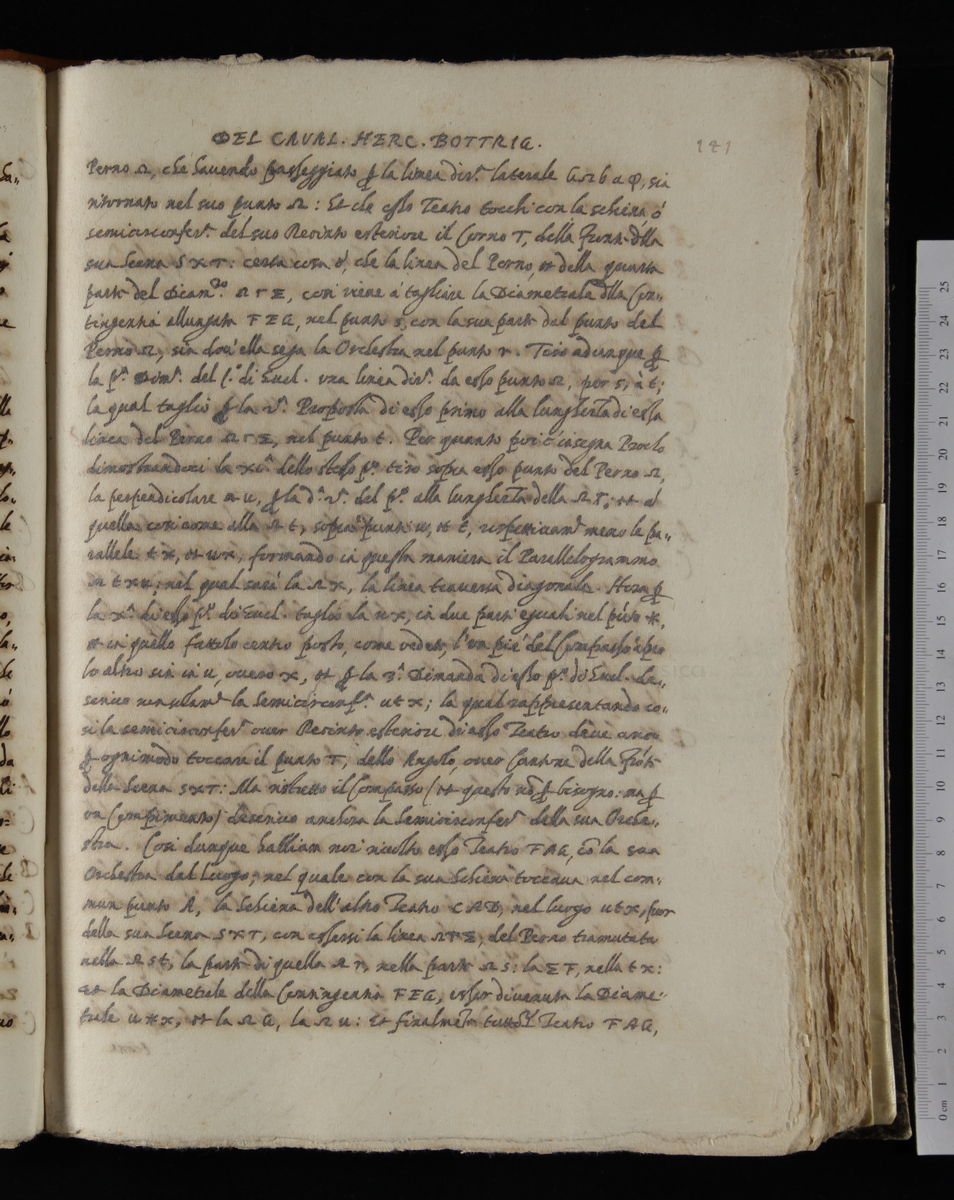 DEL CAVAL. HERC. BOTTRIG.
121
Perno Ω, che havendo passeggiato ꝑ la linea dir.ª laterale GΩbaφ, sia
ritornato nel suo punto Ω: Et che esso Teatro tocchi con la schiena ó
semicirconfer.ª del suo Recinto esteriore il Corno T, della Front. della
sua Scena SXT: certa cosa é, che la linea del Perno, et della quarta
parte del Diam.º ΩΓΞ, così viene à tagliare la Diametrale dlla Con-
tingentia allungata FEG, nel punto s, con la sua parte dal punto del
Perno Ω, sin dov'ella sega la Orchestra nel punto r. Tiro adunque ꝑ
la pª Dim.ª del l.º di Eucl. una linea dir.ª da esso punto Ω, per s, à t;
la qual taglio ꝑ la Proposta di esso primo alla lunghezza di essa
linea del Perno ΩΓΞ, nel punto t. Per quanto poi c'insegna Proclo
dimostrandoci la xiª dello stesso pº tiro sopra esso punto del Perno Ω,
la perpendicolare Ωu, ꝑ la del pº alla lunghezza della et à
quella così come alla Ωt, sopra i punti u, et t, rispettivamte meno le pa-
rallele tx, et ux, formando in questa maniera il Parallelogrammo
Ωtxu; nel qual sarà la Ωx, la linea traversa diagonale. Hora ꝑ
la xª di esso pº di Eucl. taglio la ux, in due parti eguali nel púto *,
et in quello fattolo centro posto, come vedete, l'un pié del Compasso apro
lo altro sin in u, overo x, et ꝑ la 3ª Dimanda di esso pº di Eucl. de-
scrivo la Semicirconf.ª utx; la qual rappresentando co-
si la semicirconfer.ª over Recinto esteriore di esso Teatro deve anco
ꝑ ogni modo toccare il punto T, dello Angolo, over Cantone della Frōte
della Scena SXT: Ma ristretto il Compasso (et questo nō ꝑ bisogno: ma ꝑ
un Compimento) descrivo anchora la Semicirconfer.ª della sua Orche-
stra. Così dunque habbiam noi rivolto esso Teatro FAG, cō la sua
Orchestra dal luogo, nel quale con la sua Schiena toccava nel com-
mun punto A, la Schiena dell'altro Teatro CAD, nel luogo utx, fuor
della sua Scena SXT, con essersi la linea ΩΓΞ, del Perno tramutata
nella Ωst, la parte di quella Ωr, nella parte Ωs: la ΞF, nella tx:
et la Diametrale della Contingentia FEG, esser divenuta la Diame-
trale u*x, et la ΩG, la Ωu: Et finalmete tutto'l Teatro FAG,